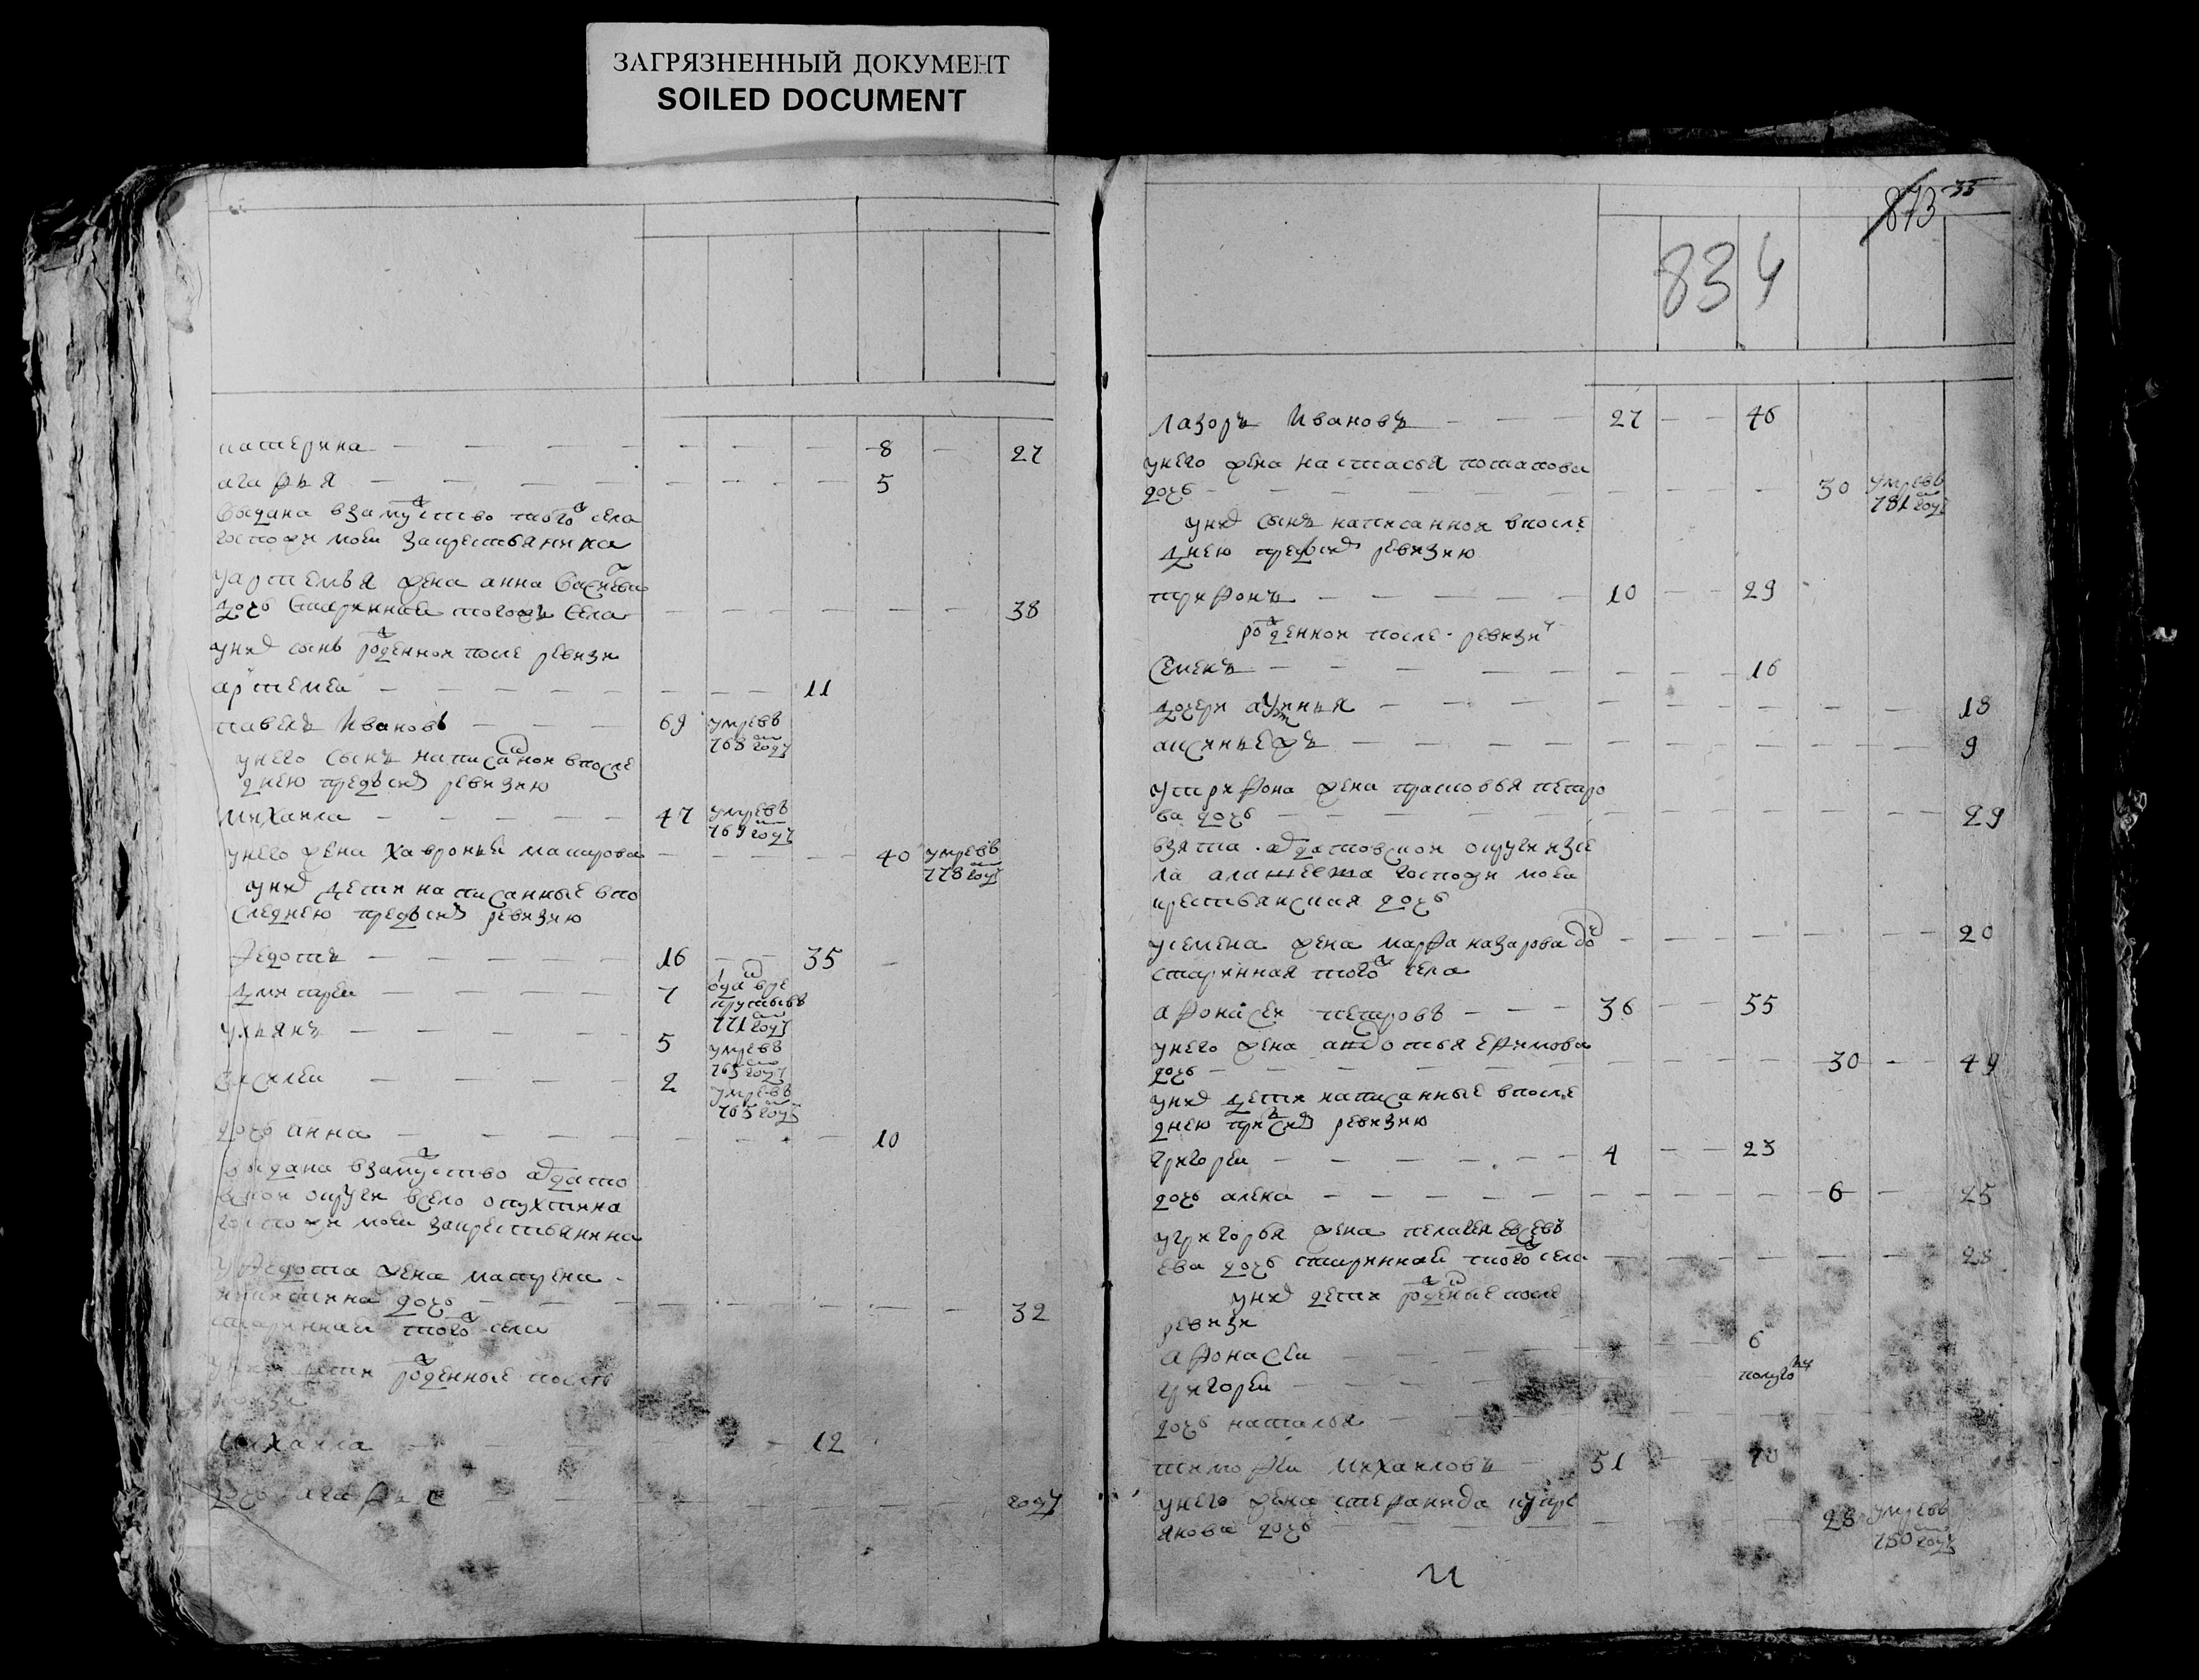 ЗАГРЯЗНЕННЫЙ ДОКУМЕНТ
SOILED DOCUMENT
катерина — 8 — 27
агафья — 5
выдана взамужство того ж села
госпожи моей закрестьянина
у артемья жена анна
дочь старинная тогожъ села — 38
у них сынъ рожденной после ревизи
артемей — 11
павелъ Ивановъ — 69 умре въ 768 году
у него сынъ написанной в после
днею пред сим ревизию
михаила — 47 умре въ 769 году
у него жена хавронья макарова — 40 умре въ 778 году
у них дети написанные в по
следнею пред сим ревизию
федотъ — 16 — 35
дмитреи — 7 отдан в рекруты въ 771 году
ульянъ — 5 умре въ 765 году
василеи — 2 умре въ 765 году
дочь анна — 10
выдана взамужство
округи в село
госпожи моей закрестьянина
у федота жена матрена
никитина дочь — 32
старинная того ж села
у них дети рожденные после
ревизи
михаила — 12
дочь агафья — году
873 35
834
лазоръ Ивановъ — 27 — 46
у него жена настасья потапова
дочь — 30 умре въ 781 году
у них сынъ написанной в после
днею пред сим ревизию
трифонъ — 10 — 29
рожденной после ревизи
Семенъ — 16
дочери — 18
аксинья — 9
у трифона жена прасковья петро
ва дочь — 29
взята округи из се
ла госпожи моей
крестьянская дочь
у семена жена марфа назарова до — 20
старинная того ж села
афонасеи петровъ — 36 — 55
у него жена авдотья ефимова
дочь — 30 — 49
у них дети написанные в после
днею пред сим ревизию
григореи — 4 — 23
дочь алена — 6 — 25
у григорья жена пелагея
ева дочь старинная того ж села — 23
у них дети рожденые после
ревизи
афонасеи — 6
григореи — полуго
дочь наталья
тимофеи михаиловъ — 51 — 70
у него жена степанида купре
янова дочь — 28 умре въ 780 году